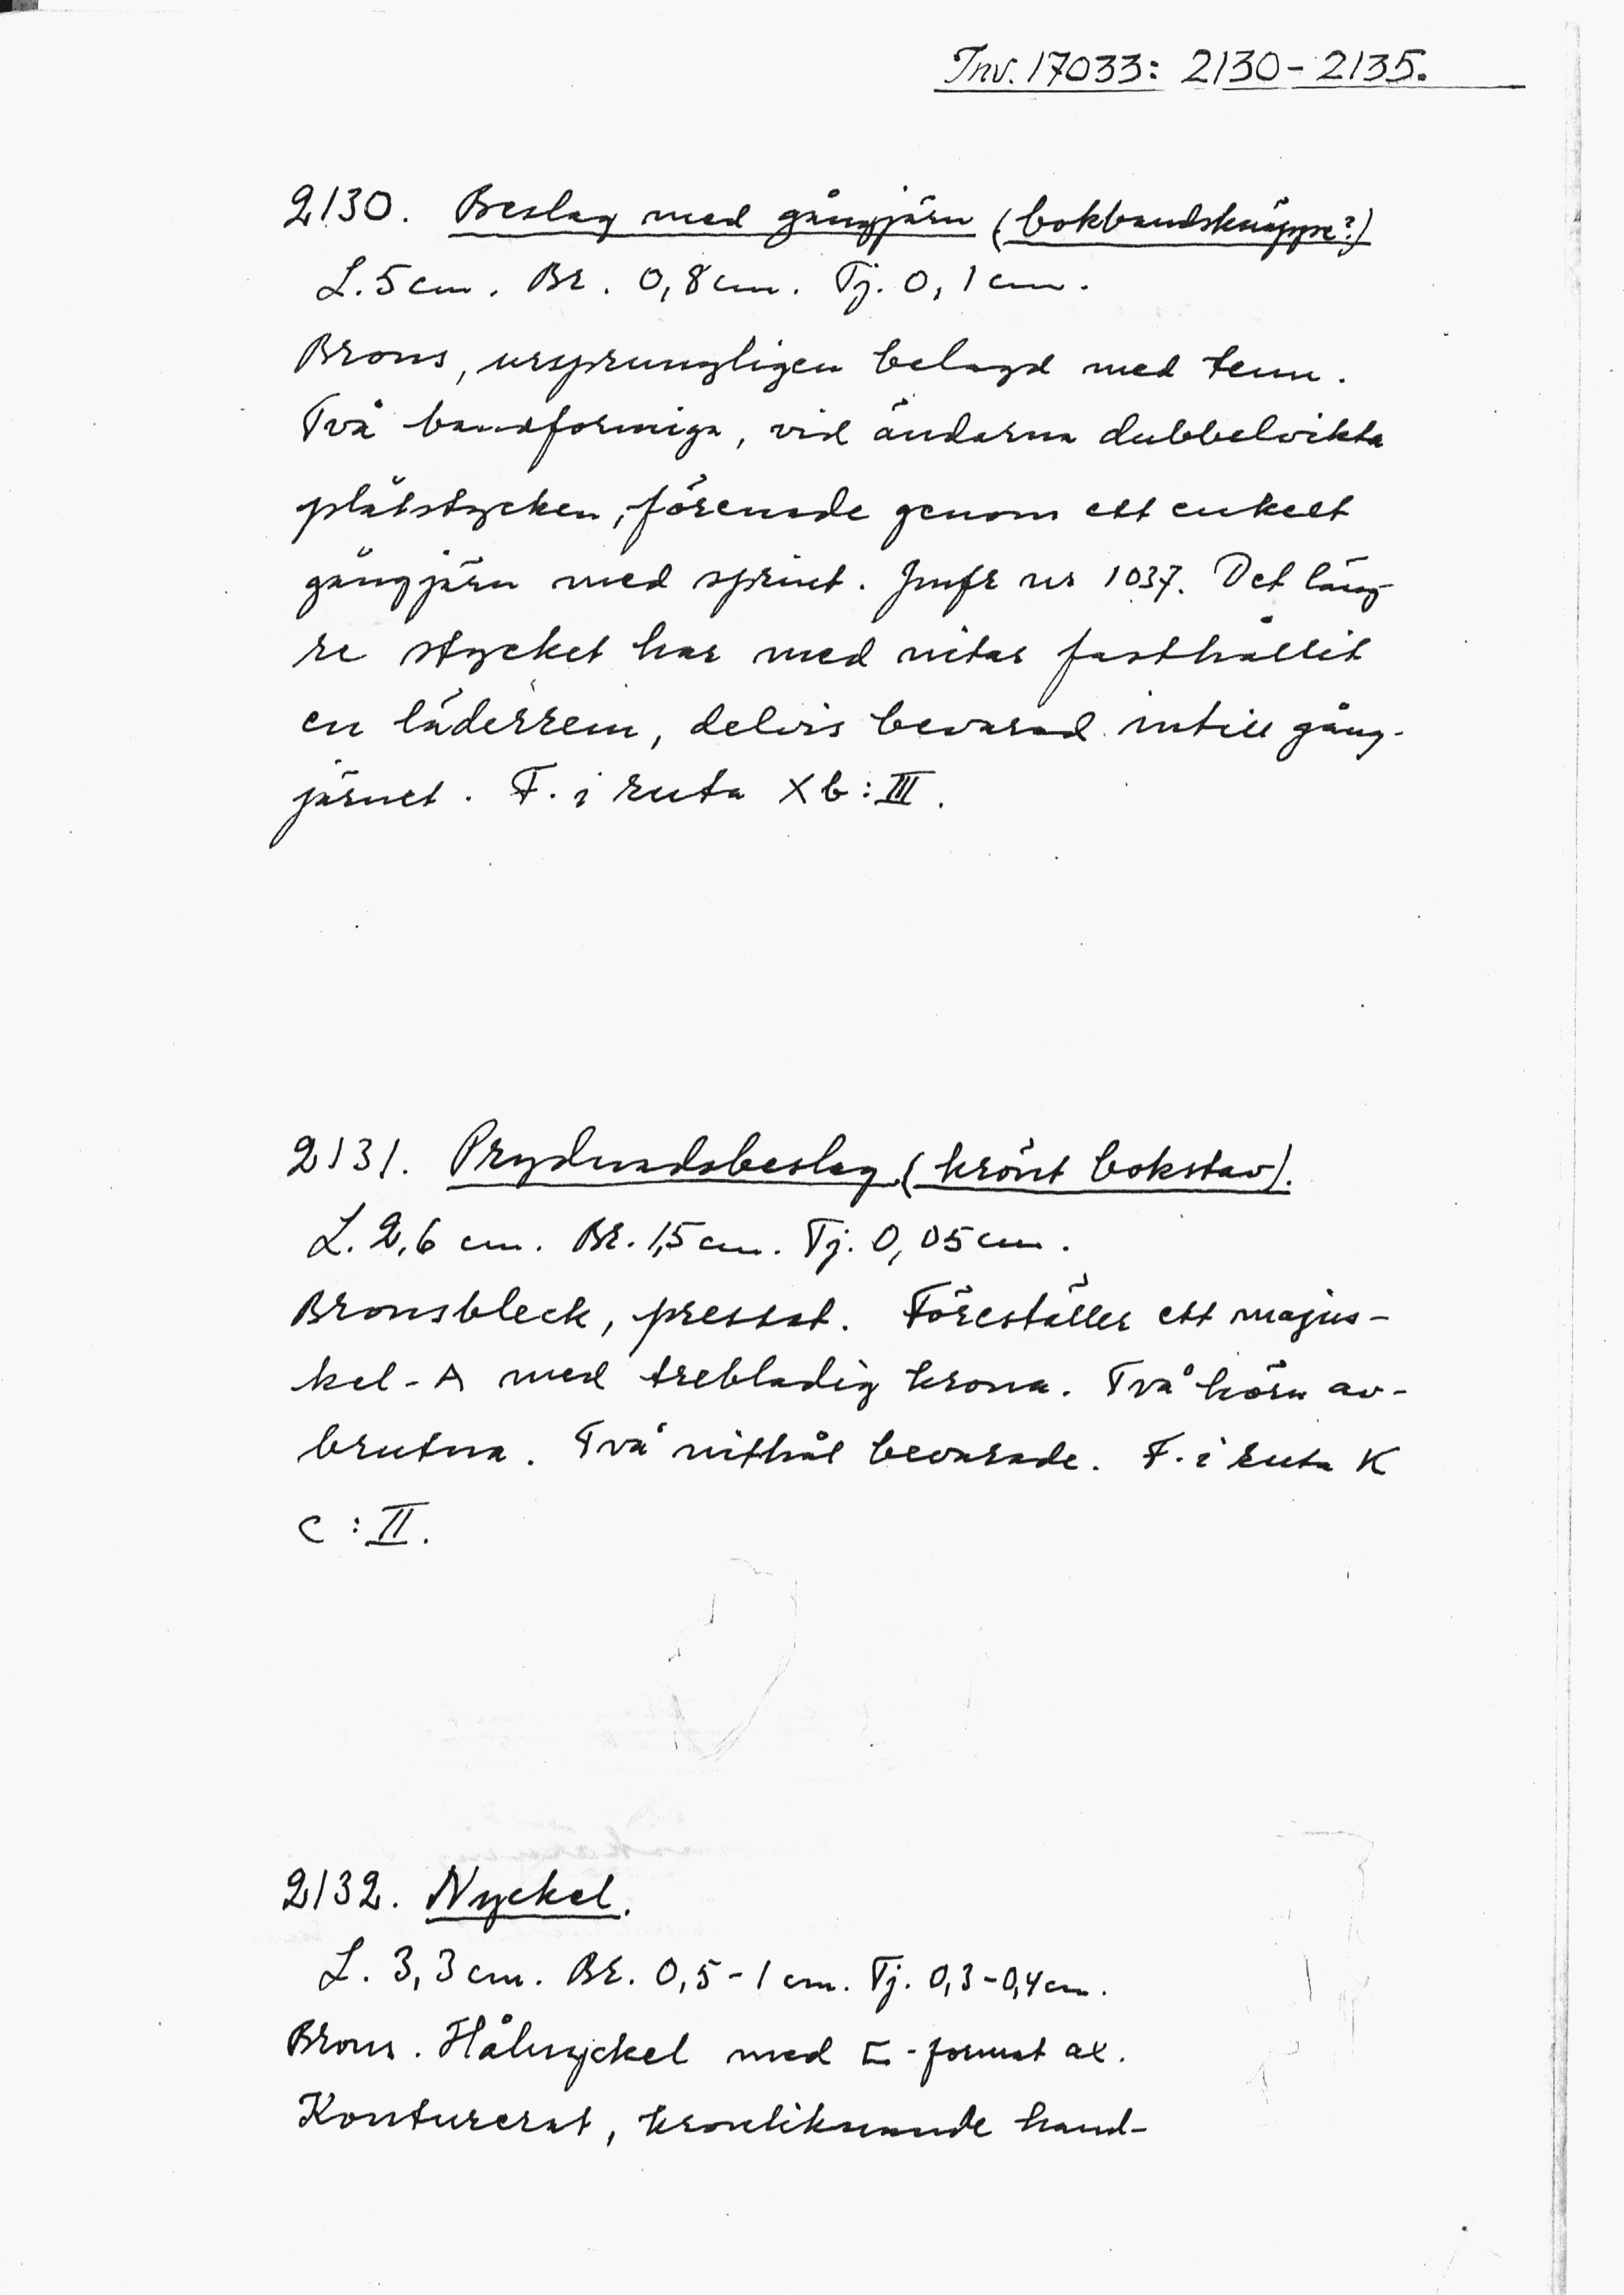 Inv. 17033: 2130-2135.
2130. Beslag med gångjärn (bokbandsknäppe?)
L. 5 cm. Br. 0,8 cm. Tj. 0,1 cm.
Brons, ursprungligen belagd med tenn.
Två bandformiga, vid ändarna dubbelvikta
plåtstycken, förenade genom ett enkelt
gångjärn med sprint. Jmfr nr 1037. Det läng-
re stycket har med nitar fasthållit
en läderrem, delvis bevarad intill gång-
järnet. F. i ruta X b : III.
2131. Prydnadsbeslag (krönt bokstav).
L. 2,6 cm. Br. 1,5 cm. Tj. 0,05 cm.
Bronsbleck, pressat. Föreställer ett majus-
kel-A med trebladig krona. Två hörn av-
brutna. Två nithål bevarade. F. i ruta K
c : II.
2132. Nyckel.
L. 3,3 cm. Br. 0,5-1 cm. Tj. 0,3-0,4 cm.
Brons. Hålnyckel med E-format ax.
Konturerat, kronliknande hand-